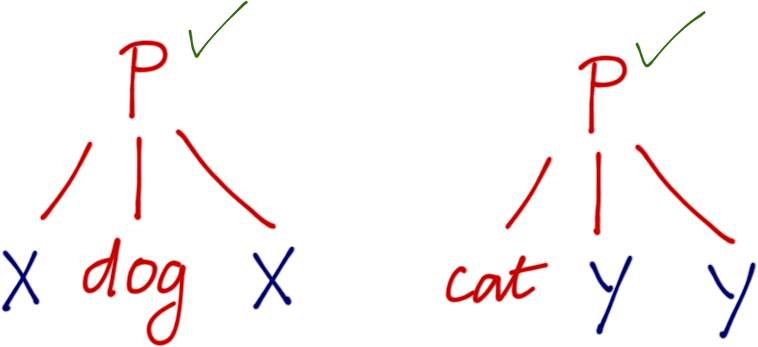 P P
X dog X cat y y